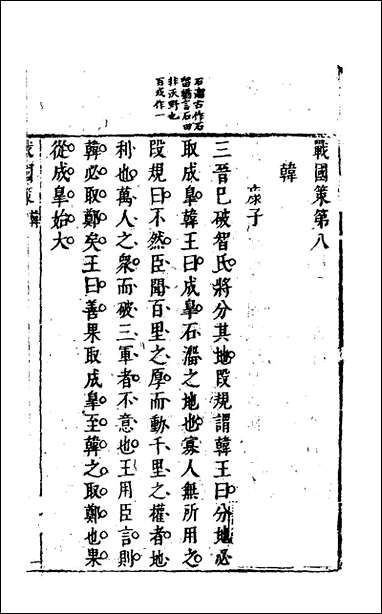 戰國策第八
韓
康子
三晉巳破智氏將分其地段規謂韓王曰分地必
取成臯韓王曰成臯石溜之地也寡人無所用之
段規曰不然臣聞百里之厚而動千里之權者地
利也萬人之衆而破三軍者不意也王用臣言則
韓必取鄭矣王曰善果取成臯至韓之取鄭也果
從成臯始大
石溜古作石
留猶言石田
非沃野也
百或作一
戰國策 韓